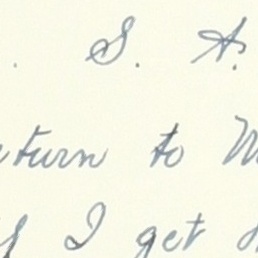 . S. A.
return to M
I get